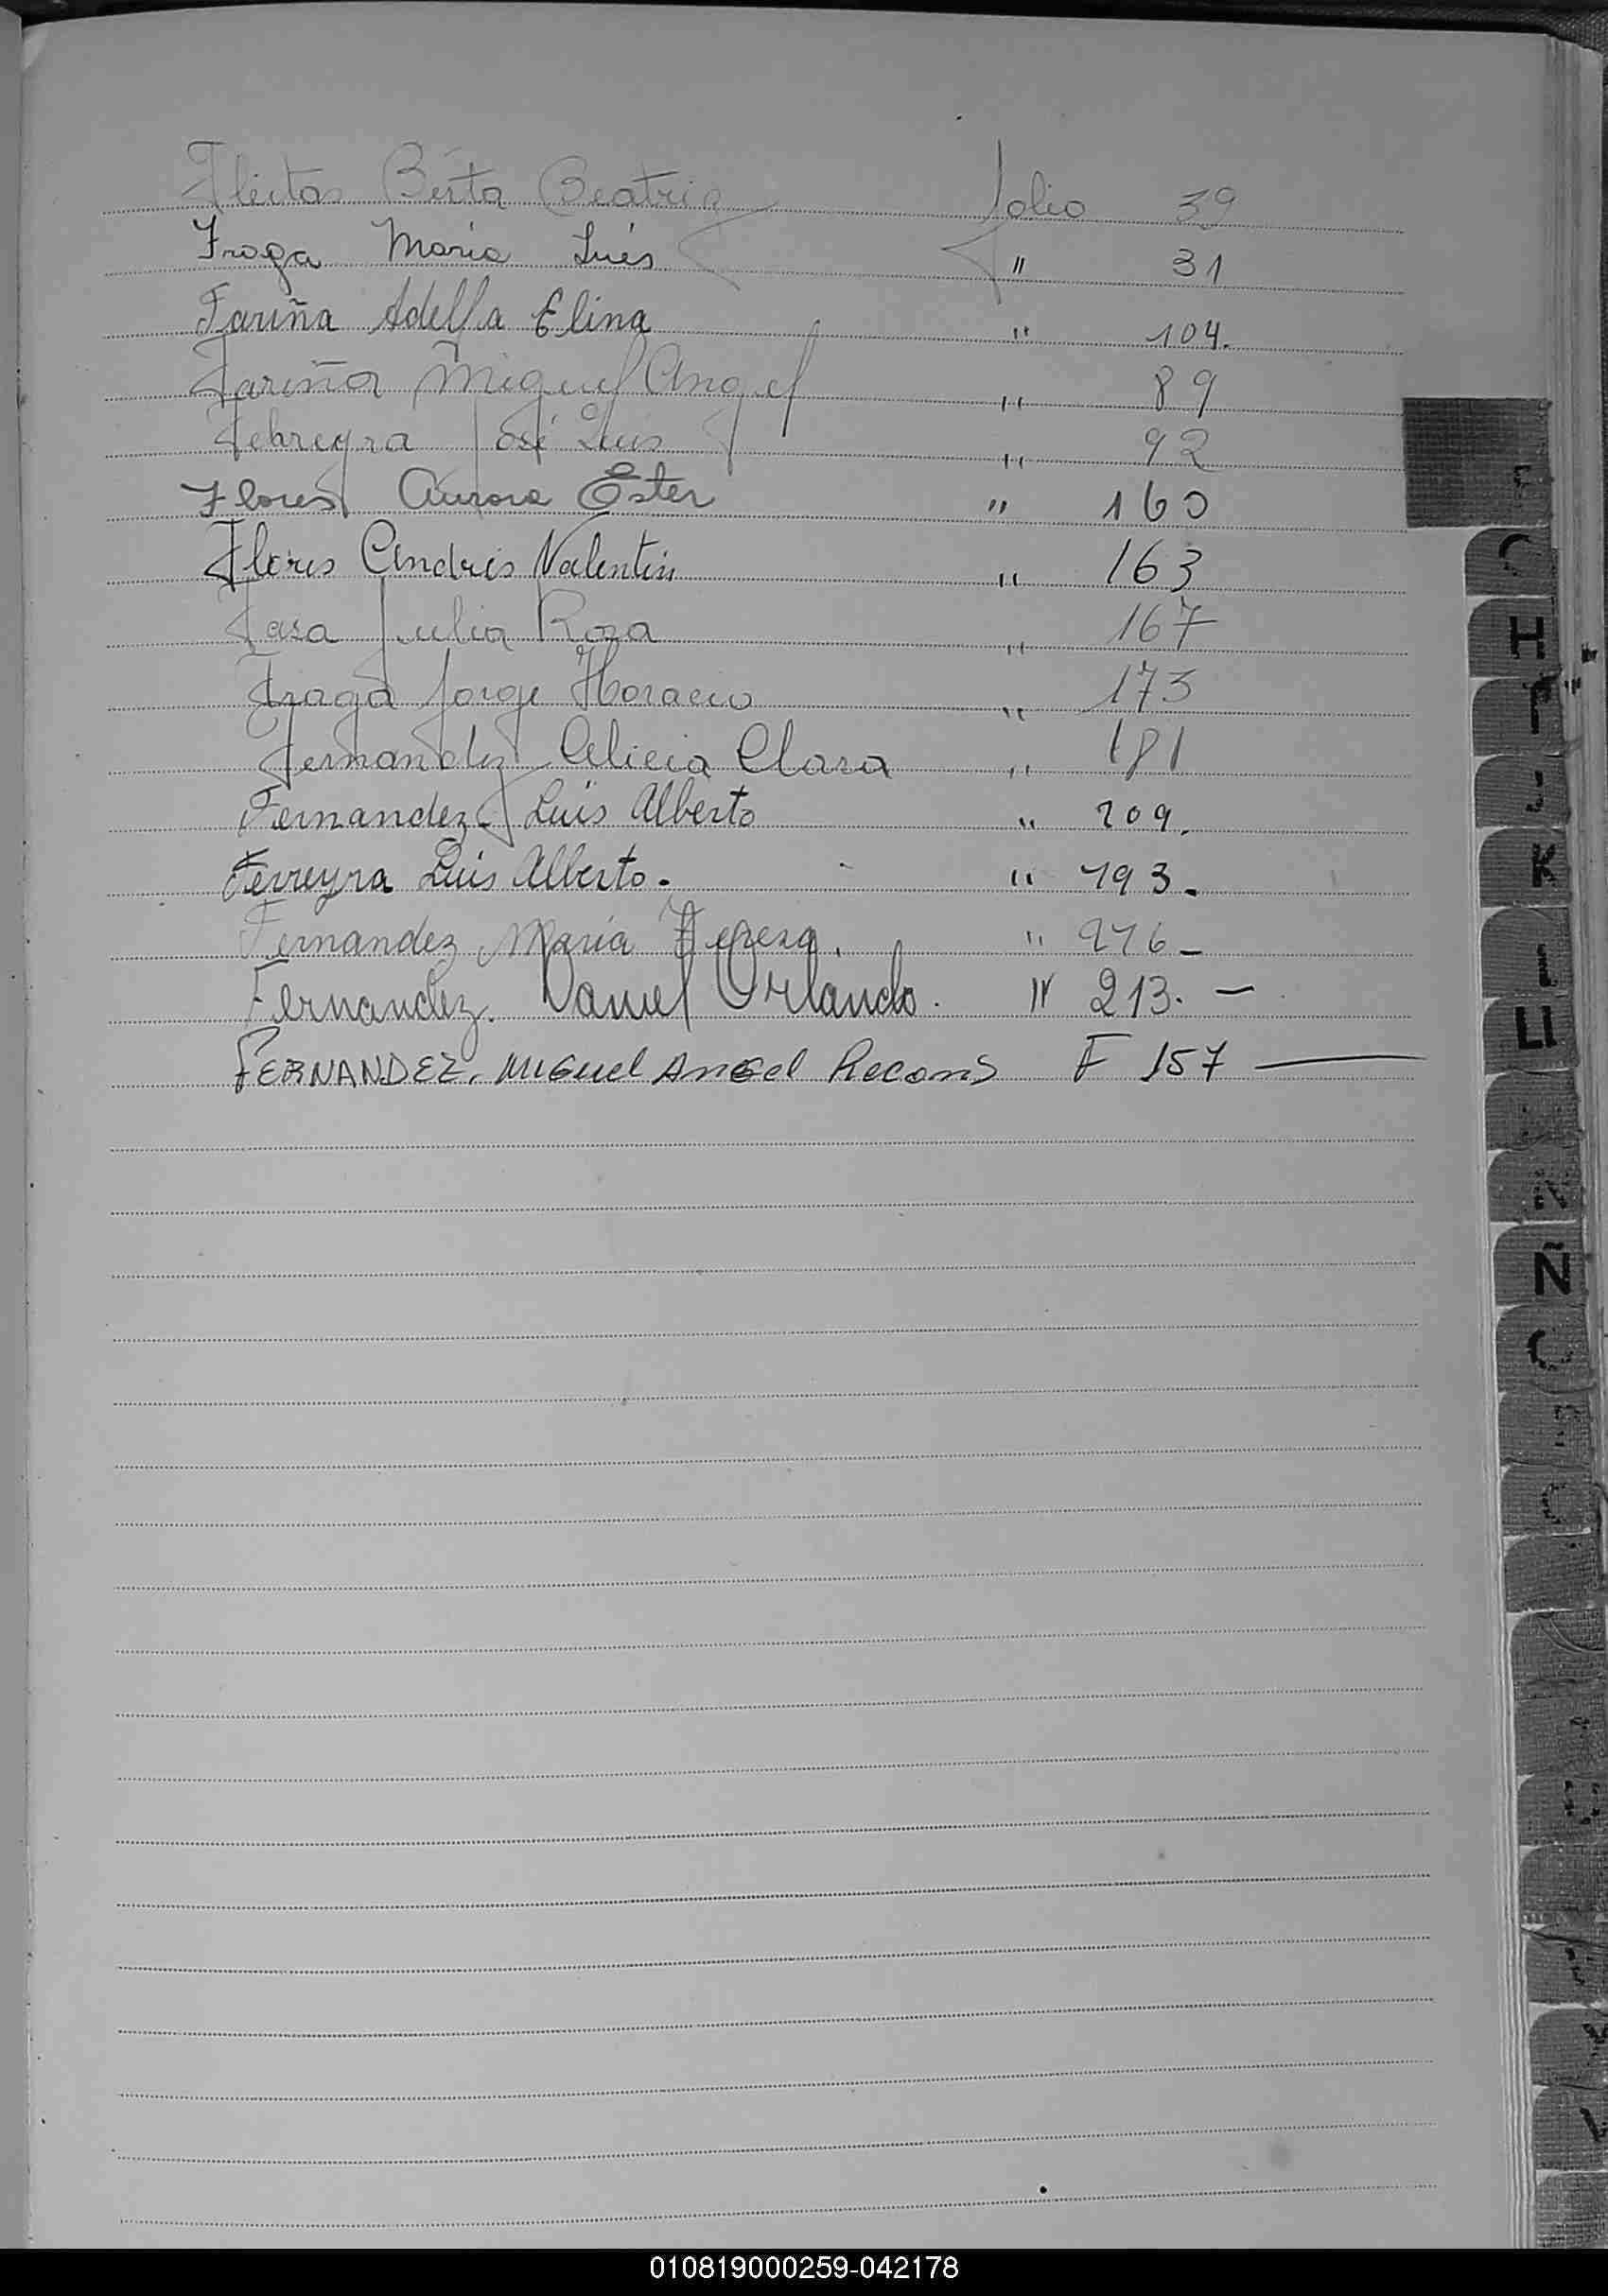 Fleitas Berta Beatriz folio 39
Fraga Maria Inés " 31
Fariña Adelfa Elina " 104.
Fariña Miguel Angel " 89
Febreyra José Luis " 92
Flores Aurora Ester " 160
Flores Andrés Valentin " 163
Fasa Julia Rosa " 167
Fraga Jorge Horacio " 173
Fernandez Alicia Clara " 181
Fernandez Luis Alberto " 209.
Ferreyra Luis Alberto. " 193.
Fernandez Maria Teresa. " 276_
Fernandez. Daniel Orlando. " 213. —
FERNANDEZ. Miguel Angel F 157 —
H
I
J
K
L
Ll
Ñ
O
010819000259-042178